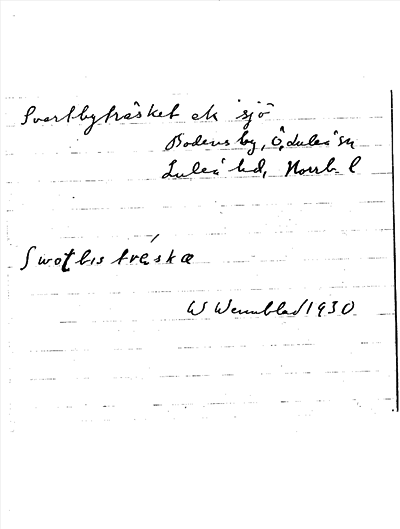 Svartbyträsket ek sjö
Bodens by, Ö.Luleå sn
Luleå hd, Norrb. l
Swotbis tréskæ
W Wennblad 1930